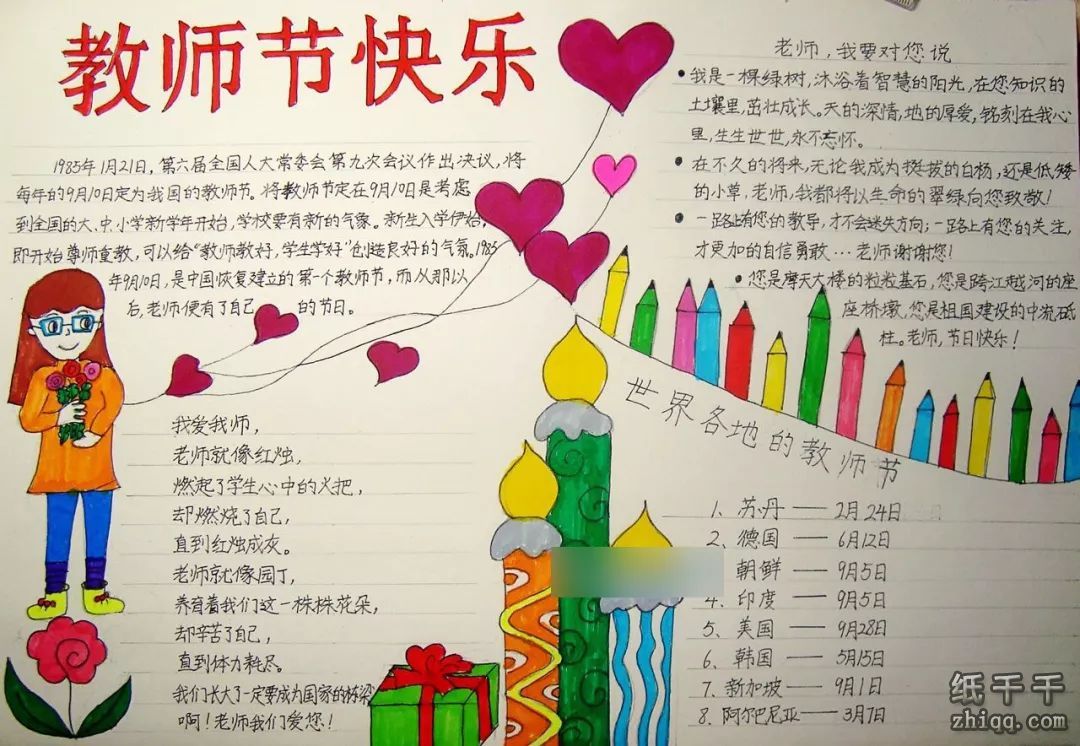 教师节快乐
1985年1月21日，第六届全国人大常委会第九次会议作出决议，将
每年的9月10日定为我国的教师节。将教师节定在9月10日是考虑
到全国的大、中、小学新学年开始，学校要有新的气象。新生入学伊始，
即开始尊师重教，可以给“教师教好，学生学好”创造良好的气氛。1985
年9月10日，是中国恢复建立的第一个教师节，而从那以
后，老师便有了自己的节日。
老师，我要对您说
•我是一棵绿树，沐浴着智慧的阳光，在您知识的
土壤里，茁壮成长。天的深情，地的厚爱，铭刻在我心
里，生生世世，永不忘怀。
•在不久的将来，无论我成为挺拔的白杨，还是低矮
的小草，老师，我都将以生命的翠绿向您致敬！
•一路上有您的教导，才不会迷失方向；一路上有您的关注，
才更加的自信勇敢…老师谢谢您！
•您是摩天大楼的粒粒基石，您是跨江越河的座
座桥墩，您是祖国建设的中流砥
柱。老师，节日快乐！
我爱我师，
老师就像红烛，
燃起了学生心中的火把，
却燃烧了自己，
直到红烛成灰。
老师就像园丁，
养育着我们这一株株花朵，
却辛苦了自己，
直到体力耗尽。
我们长大了一定要成为国家的栋梁
啊！老师我们爱您！
世界各地的教师节
1、苏丹——2月24日
2、德国——6月12日
朝鲜——9月5日
4、印度——9月5日
5、美国——9月28日
6、韩国——5月15日
7、新加坡——9月1日
8、阿尔巴尼亚——3月7日
纸千千
zhiqq.com